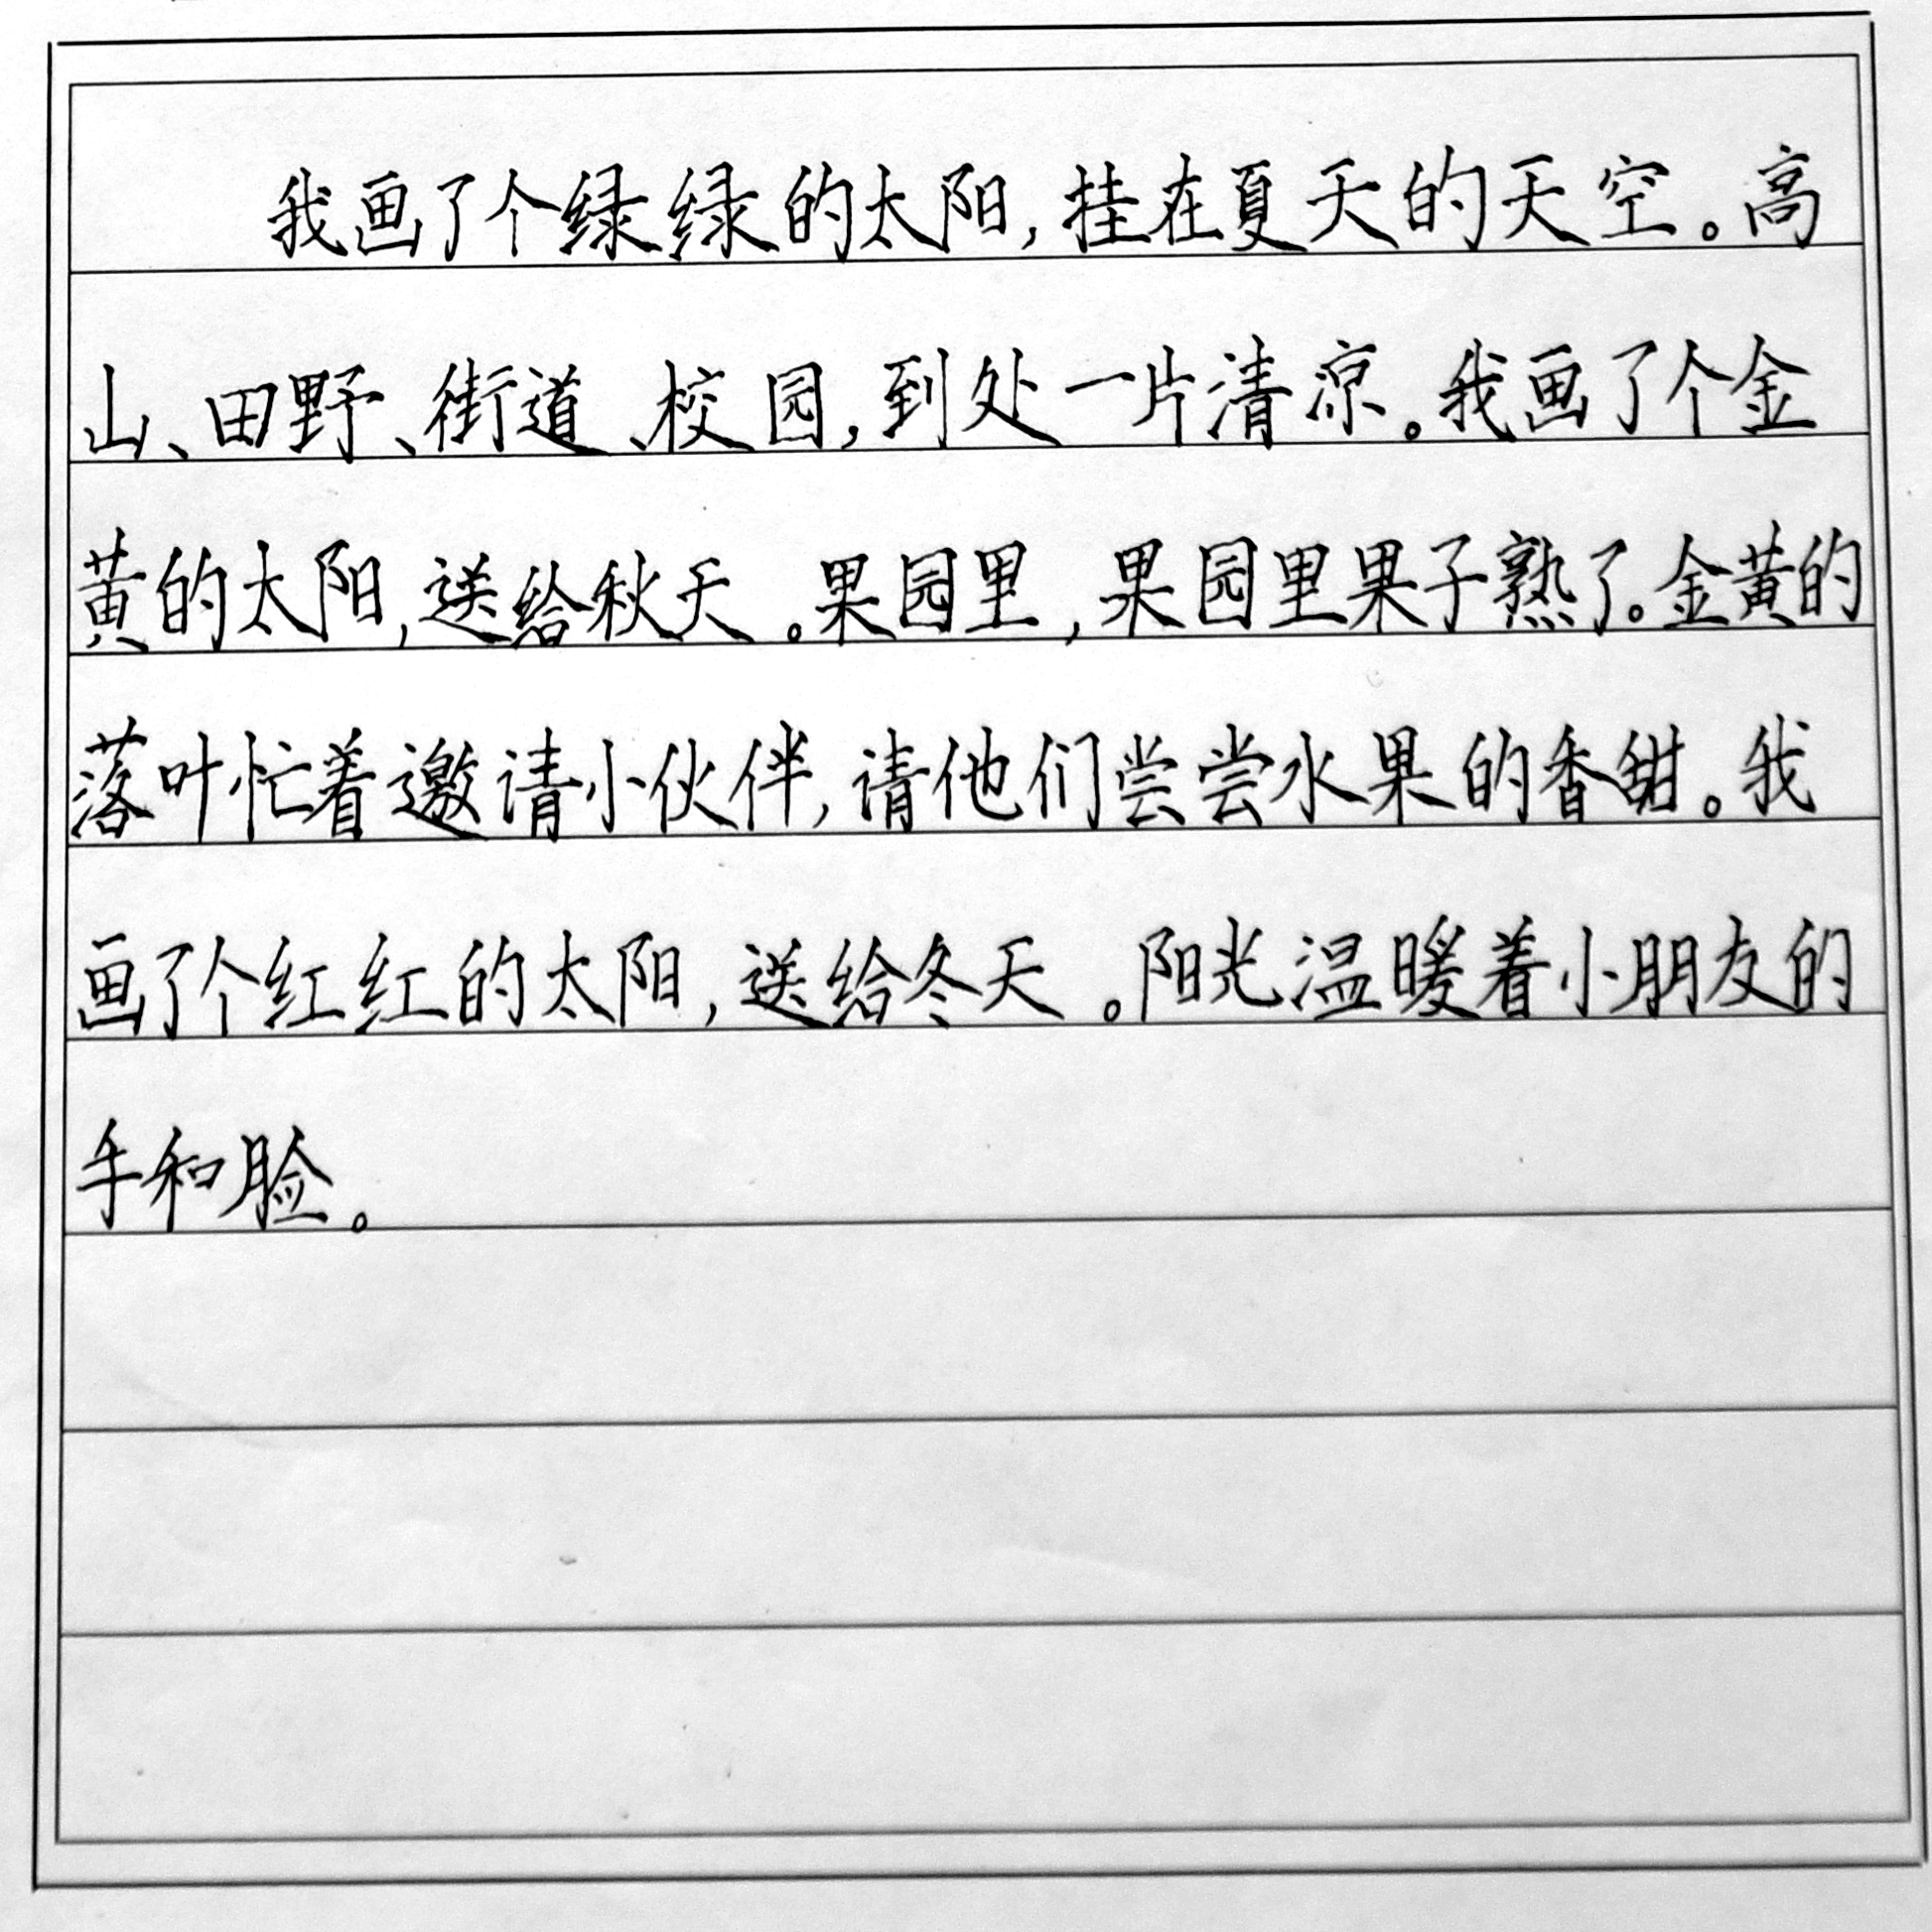 我画了个绿绿的太阳,挂在夏天的天空。高
山、田野、街道、校园,到处一片清凉。我画了个金
黄的太阳,送给秋天。果园里,果园里果子熟了。金黄的
落叶忙着邀请小伙伴,请他们尝尝水果的香甜。我
画了个红红的太阳,送给冬天。阳光温暖着小朋友的
手和脸。